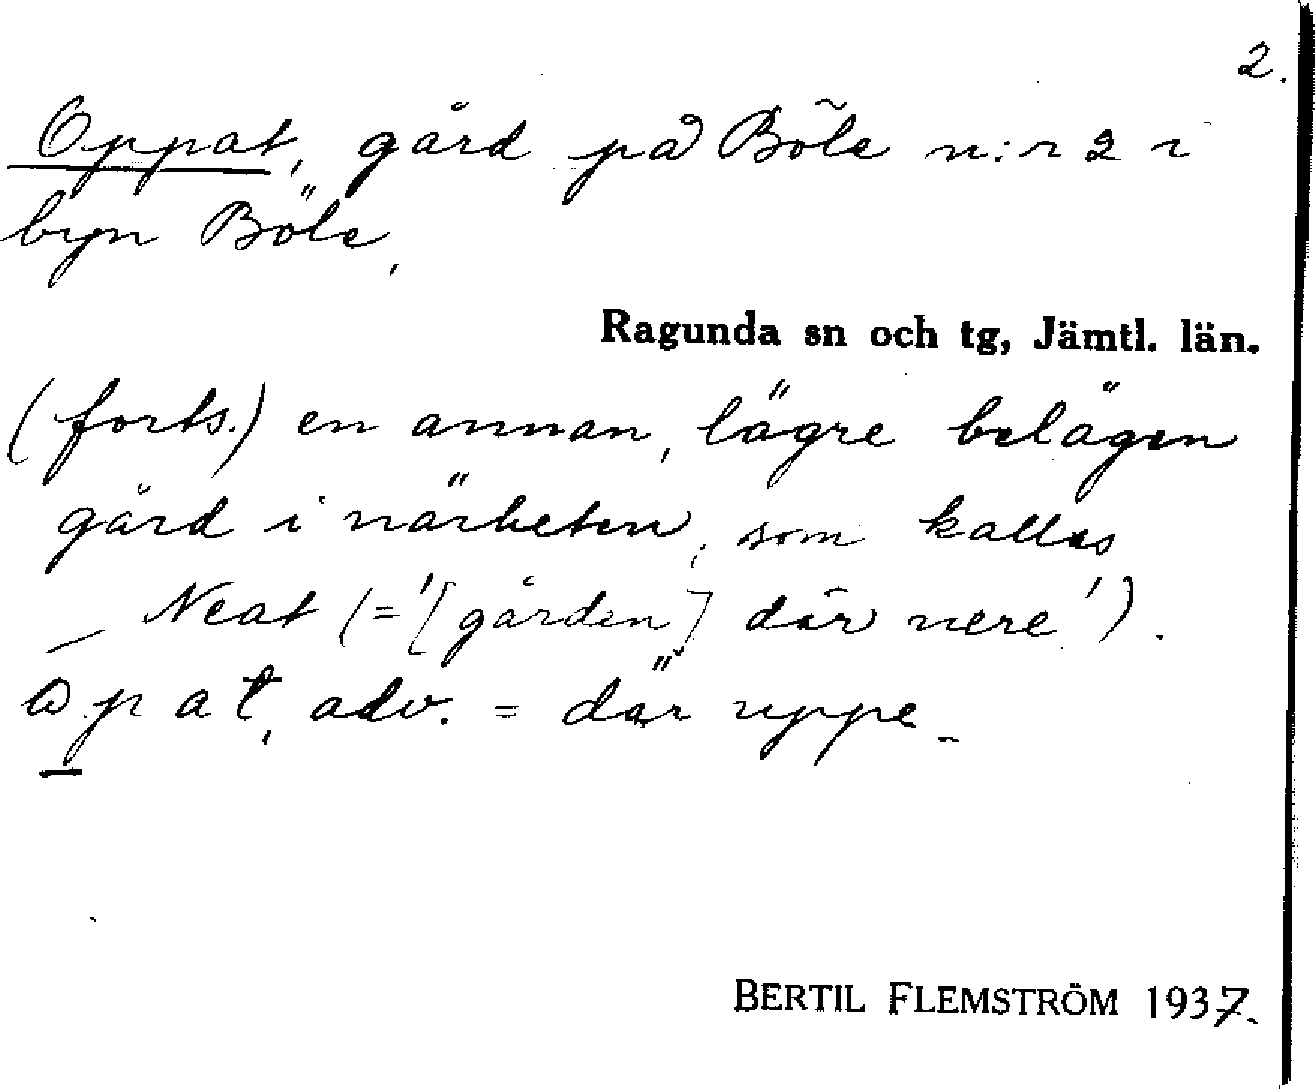 2.
Oppat, gård på Böle n:r 2 i
byn Böle,
Ragunda sn och tg, Jämtl. län.
(forts.) en annan, lägre belägen
gård i närheten, som kallas
Neat (='[gården] där nere').
ɷpat, adv. = där uppe.
BERTIL FLEMSTRÖM 1937.